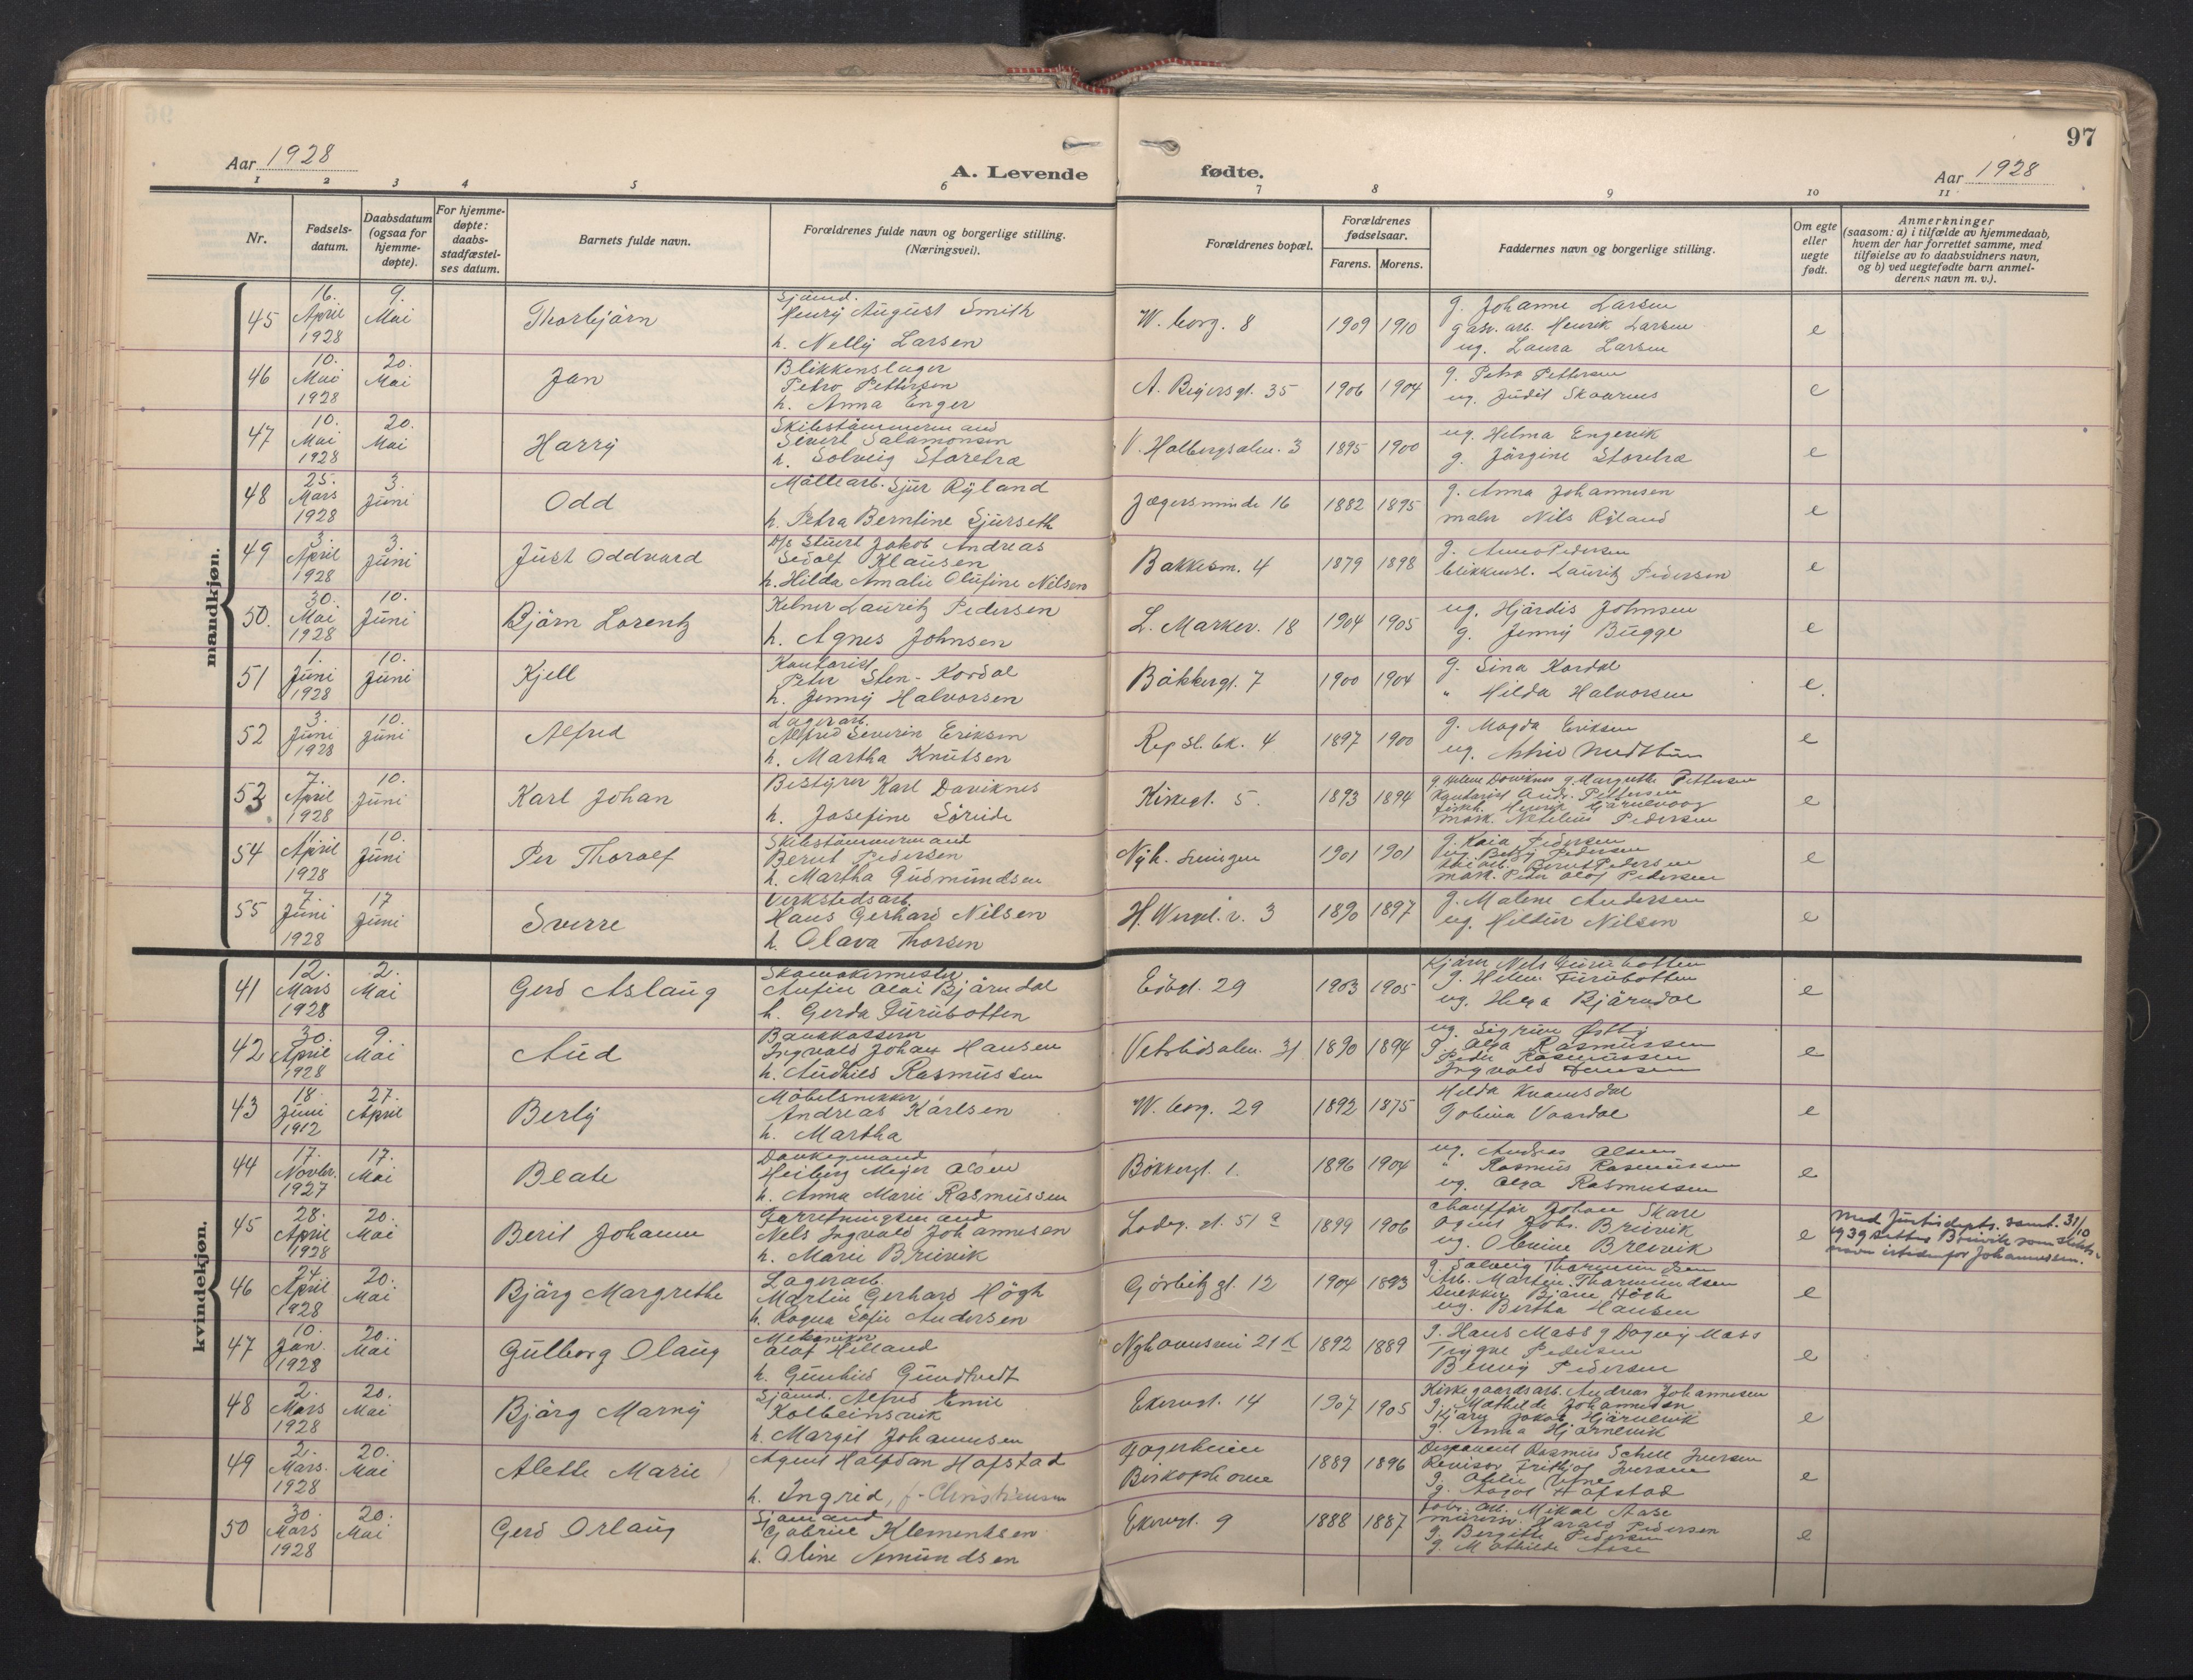 97
Aar 1928
A. Levende fødte.
Aar 1928
1 2 3 4 5 6 7 8 9 10 11
Nr.
Fødsels-
datum.
Daabsdatum
(ogsaa for
hjemme-
døpte).
For hjemme-
døpte:
daabs-
stadfæstel-
ses datum.
Barnets fulde navn.
Forældrenes fulde navn og borgerlige stilling.
(Næringsvei).
Forældrenes bopæl.
Forældrenes
fødselsaar.
Farens. Morens.
Faddernes navn og borgerlige stilling.
Om egte
eller
uegte
født.
Anmerkninger
(saasom: a) i tilfælde av hjemmedaab,
hvem der har forrettet samme, med
tilføielse av to daabsvidners navn,
og b) ved uegtefødte barn anmel-
derens navn m. v.).
mandkjøn.
45
16.
April
1928
9.
Mai
Thorbjørn
Sjømd.
Henry August Smith
h. Nelly Larsen
W. borg. 8
1909 1910
g. Johanne Larsen
gasv. arb. Henrik Larsen
ug. Laura Larsen
e
46
10.
Mai
1928
20.
Mai
Jan
Blikkenslager
Petro Pettersen
h. Anna Enger
A. Beyersgt. 35
1906 1904
g. Petra Pettersen
ug. Judit Skaarnes
e
47
10.
Mai
1928
20.
Mai
Harry
Skibstømmermand
Sivert Salamonsen
h. Solveig Storetræ
V. Holbergsalm. 3
1895 1900
ug. Helma Engevik
g. Jørgine Storetræ
e
48
25.
Mars
1928
3.
Juni
Odd
Møllearb. Sjur Ryland
h. Petra Berntine Sjurseth
Jægersminde 16
1882 1895
g. Anna Johannesen
maler Nils Ryland
e
49
3.
April
1928
3.
Juni
Just Oddvard
D/s Stuert Jakob Andreas
Sedolf Klausen
h. Hilda Amalie Olufine Nilsen
Bakkesm. 4
1879 1898
g. Anna Pedersen
blikkensl. Lauritz Pedersen
e
50.
30.
Mai
1928
10.
Juni
Bjørn Lorentz
Kelner Lauritz Pedersen
h. Agnes Johnsen
L. Markev. 18
1904 1905
ug. Hjørdis Johnsen
g. Jenny Bugge
e
51
1.
Juni
1928
10.
Juni
Kjell
Kontorist
Peter Sten-Kordal
h. Jenny Halvorsen
Bøkkergt. 7
1900 1904
g. Sina Kordal
" Hilda Halvorsen
e.
52
3.
Juni
1928
10.
Juni
Alfred
Lagerarb.
Alfred Severin Eriksen
h. Martha Knutsen
Rep sl. bk. 4
1897 1900
g. Magda Eriksen
ug. Astrid
e
53
7.
April
1928
10.
Juni
Karl Johan
Bestyrer Karl Daviknes
h. Josefine Søreide
Kirkegt. 5.
1893 1894
g. Helene Daviknes g. Margrethe Pettersen
Kontorist Andr. Pettersen
fiskh. Henrik
mask. Nktelius Pedersen
e
54
11.
April
1928
10.
Juni
Per Thoralf
Skibstømmermand
Bernt Pedersen
h. Martha Gudmundsen
Nyh. svingen
1901 1901
g. Kaia Pedersen
ug. Betsy Pedersen
Bernt Pedersen
mask. Peder Olof Pedersen
e
55
7.
Juni
1928
17
Juni
Sverre
Verkstedsarb.
Hans Gerhard Nilsen
h. Olava Thorsen
H. Wergel. v. 3
1890 1897
g. Malene Andersen
ug. Hildur Nilsen
e
kvindekjøn.
41
12.
Mars
1928
2.
Mai
Gerd Aslaug
Skomakermester
Anfin Olai Bjørndal
h. Gerda Furubotten
Edbgt. 29
1903 1905
Nels Furubotten
g. Helen Furubotten
ug. Helga Bjørndal
e
42
30.
April
1928
9.
Mai
Aud
Bankkasserer
Ingvald Johan Hansen
h. Audhild Rasmussen
Vetrlidsalm. 31
1890 1894
ug. Sigrun Østby
g. Olga Rasmussen
Peder Rasmussen
Ingvald Hansen
e
43
18.
Juni
1912
27.
April
Berly
Møbelsnekker
Andreas Karlsen
h. Martha
W. borg. 29
1892 1875
Hilda Kvamsdal
Gobina Vaardal
e
44
17.
Novbr.
1927
17.
Mai
Beate
Donkeymand
Heiberg Meyer Olsen
h. Anna Marie Rasmussen
Bøkkergt. 1.
1896 1904
ug. Andreas Olsen
" Rasmus Rasmussen
ug. Olga Rasmussen
e
45
28.
April
1928
20.
Mai
Berit Johanne
Forretningsmand
Nels Ingvald Johannesen
h. Marie Breivik
Lodeg. gt. 51 a
1899 1906
Chauffør Johan Skare
Agent Johs. Breivik
ug. Oline Breivik
e
Med Justisdepts. samt. 31/10
1939 settes Breivik som slekts-
navn istedenfor Johannessen.
46
24.
April
1928
20.
Mai
Bjørg Margrethe
Lagerarb.
Martin Gerhard Høgh
h. Ragna Sofie Andersen
Gørbitz gt. 12
1904 1893
g. Solveig Thormundsen
Arb. Martin Thormundsen
Snekker Bjarne Høgh
ug. Bertha Hansen
e
47
10.
Jan.
1928
20.
Mai
Gulborg Olaug
Mekaniker
Olaf Helland
h. Gunhild Gundtvedt
Nyhavnsvei 21 K
1892 1889
g. Hans Mass g Dagny Mass
Trygve Pedersen
Benny Pedersen
e
48
2.
Mars
1928
20.
Mai
Bjørg Marny
Sjømd. Alfred Emil
Kolbeinsvik
h. Margit Johannesen
Ekrengt. 14
1907 1905
Kirkegaardsarb. Andreas Johannesen
g. Mathilde Johannesen
Jakob Hjørnevik
g. Anna Hjørnevik
e
49
2.
Mars.
1928
20.
Mai
Alette Marie
Agent Halfdan Hofstad
h. Ingrid, f. Christiansen
Fagerheim
Biskopshavn
1889 1896
Disponent Rasmus Schell Iversen
Revisor Fritjof Iversen
g. Utne
g. Aagot Hofstad
e
50
30.
Mars
1928
20.
Mai
Gerd Orlaug
Sjømand
Gabriel Klementsen
h. Oline Amundsen
Ekrengt. 9
1888 1887
Fabr. arb. Mikal Aase
murersv. Harald Pedersen
g. Bergitte Pedersen
g. Mathilde Aase
e